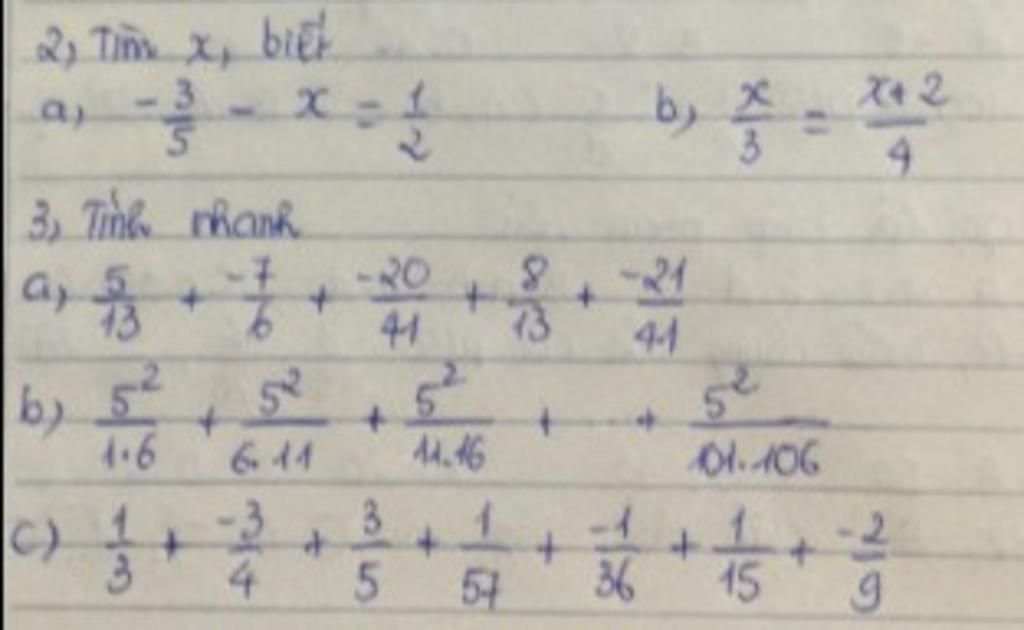 2, Tìm x, biết
a, -3/5 - x = 1/2 b, x/3 = x+2/4
3, Tính nhanh
a, 5/13 + -7/6 + -20/41 + 8/13 + -21/41
b) 5²/1.6 + 5²/6.11 + 5²/11.16 + ... + 5²/101.106
c) 1/3 + -3/4 + 3/5 + 1/57 + -1/36 + 1/15 + -2/9